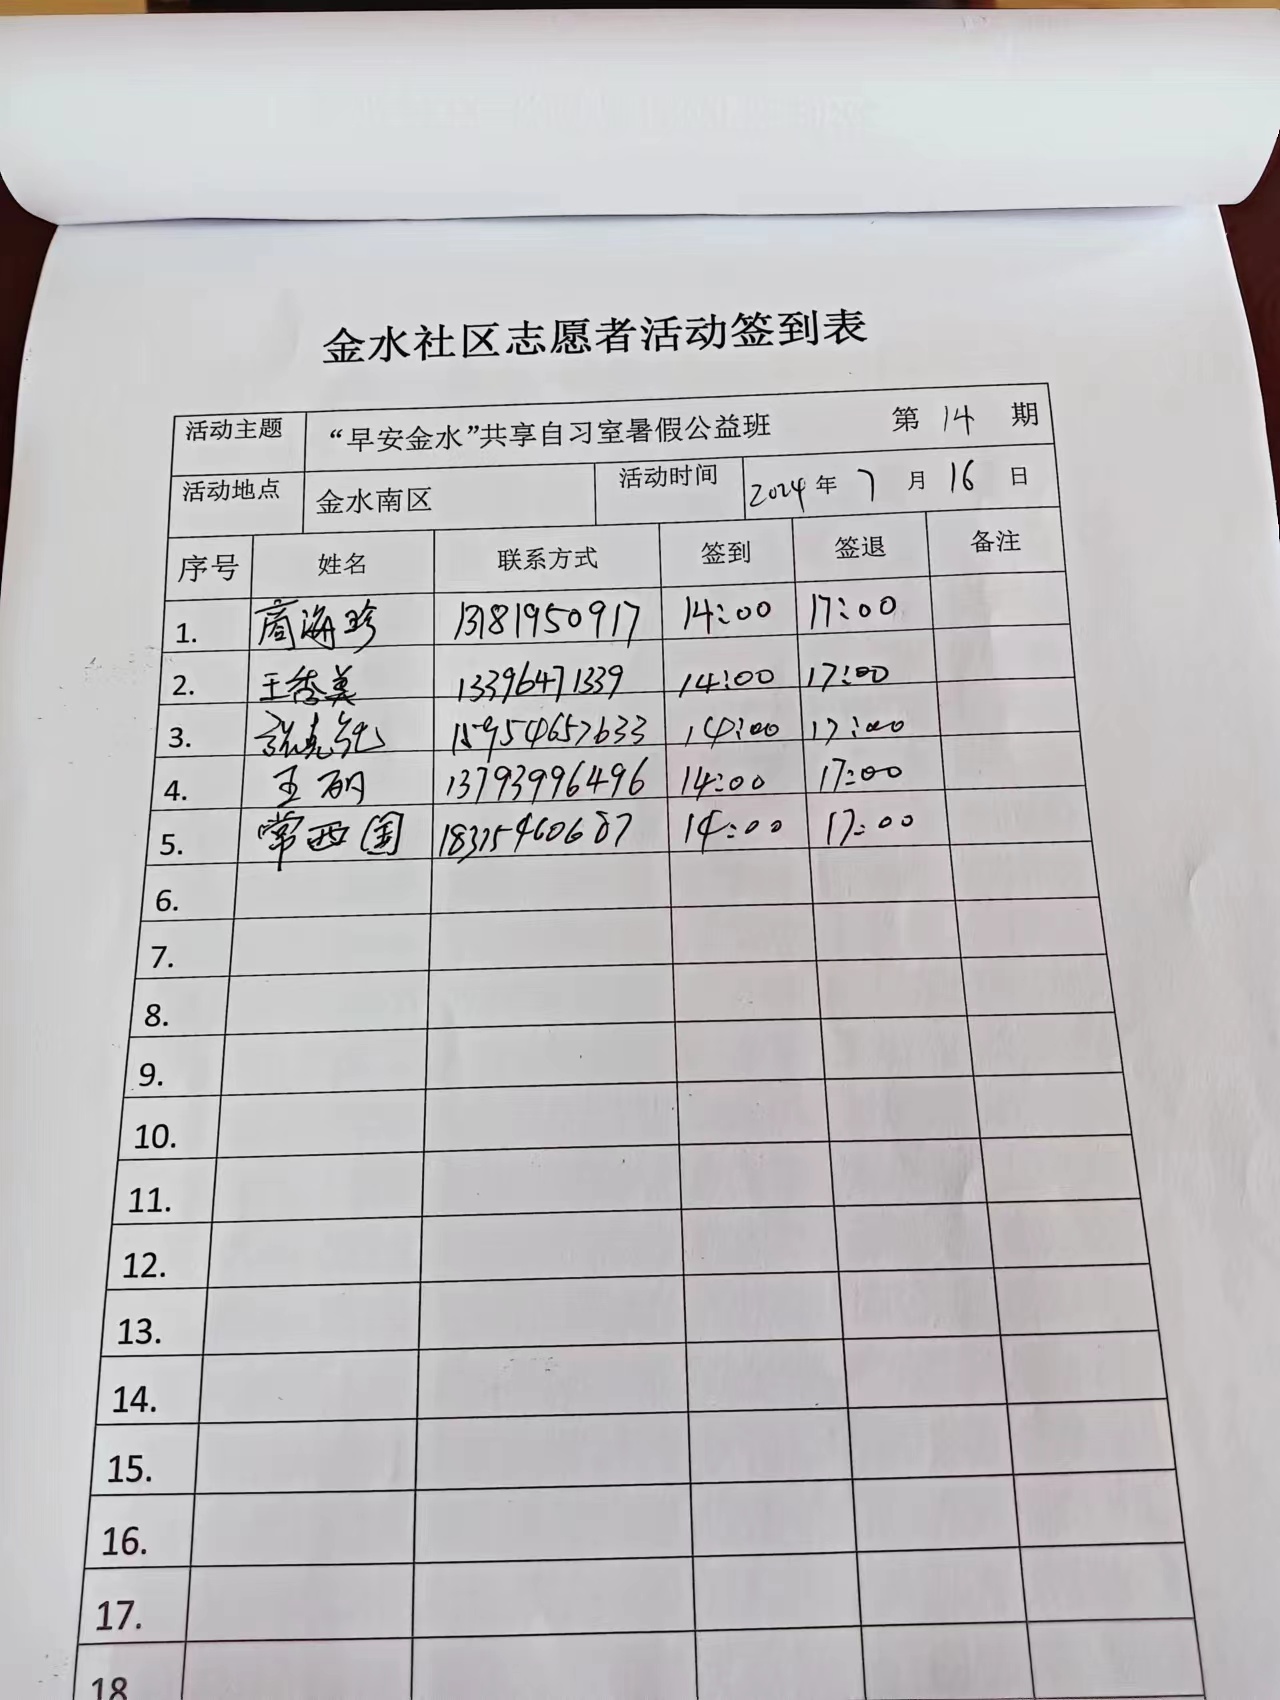 金水社区志愿者活动签到表
活动主题 “早安金水”共享自习室暑假公益班 第 14 期
活动地点 金水南区 活动时间 2024 年 7 月 16 日
序号 姓名 联系方式 签到 签退 备注
1. 商海珍 13181950917 14:00 17:00
2. 王秀美 13396471339 14:00 17:00
3. 15954657633 14:00 17:00
4. 王 13793996496 14:00 17:00
5. 常西国 18315460687 14:00 17:00
6.
7.
8.
9.
10.
11.
12.
13.
14.
15.
16.
17.
18